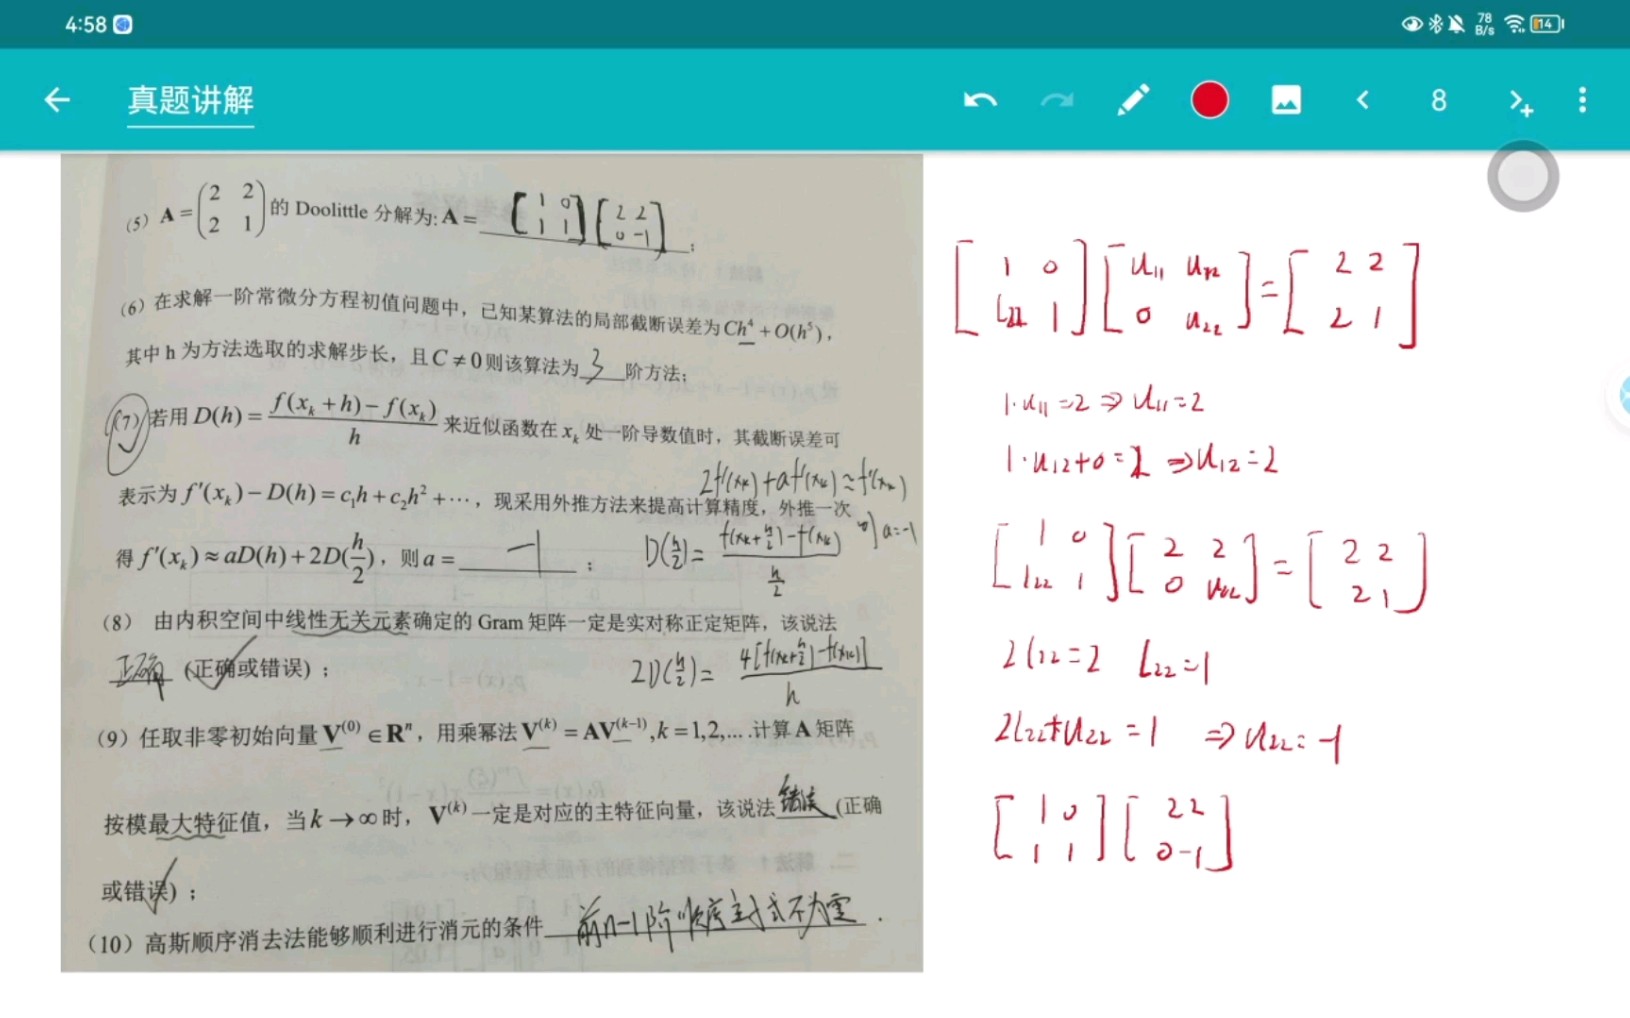 4:58
78 B/s 14
真题讲解
8
(5) A = (2 2; 2 1) 的 Doolittle 分解为: A = [1 0; 1 1][2 2; 0 -1] ;
(6) 在求解一阶常微分方程初值问题中，已知某算法的局部截断误差为 Ch⁴ + O(h⁵) ,
其中 h 为方法选取的求解步长，且 C ≠ 0 则该算法为 3 阶方法;
(7) 若用 D(h) = (f(xₖ + h) − f(xₖ)) / h 来近似函数在 xₖ 处一阶导数值时，其截断误差可
2f'(xₖ)+af'(xₖ)≈f'(xₖ)
表示为 f'(xₖ) − D(h) = c₁h + c₂h² + ⋯ ，现采用外推方法来提高计算精度，外推一次
得 f'(xₖ) ≈ aD(h) + 2D(h/2) ，则 a = -1 ;
D(h/2) = (f(xₖ+h/2)-f(xₖ)) / (h/2)
a=-1
(8) 由内积空间中线性无关元素确定的 Gram 矩阵一定是实对称正定矩阵，该说法
正确 (正确或错误) ;
2D(h/2) = 4[f(xₖ+h/2)-f(xₖ)] / h
(9) 任取非零初始向量 V⁽⁰⁾ ∈ Rⁿ ，用乘幂法 V⁽ᵏ⁾ = AV⁽ᵏ⁻¹⁾, k = 1,2,... .计算 A 矩阵
按模最大特征值，当 k → ∞ 时， V⁽ᵏ⁾ 一定是对应的主特征向量，该说法 错误 (正确
或错误) ;
(10) 高斯顺序消去法能够顺利进行消元的条件 前n-1阶顺序主子式不为零 .
[1 0; l₂₂ 1][u₁₁ u₁₂; 0 u₂₂] = [2 2; 2 1]
1·u₁₁=2 ⇒ u₁₁=2
1·u₁₂+0=2 ⇒ u₁₂=2
[1 0; l₂₂ 1][2 2; 0 u₂₂] = [2 2; 2 1]
2l₂₂=2 L₂₂=1
2l₂₂+u₂₂=1 ⇒ u₂₂=-1
[1 0; 1 1][2 2; 0 -1]